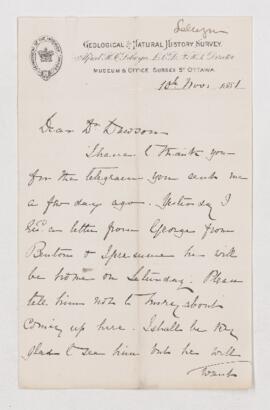 Selwyn
GEOLOGICAL & NATURAL HISTORY SURVEY.
Alfred R. C. Selwyn L.L.D. F.R.S. Director
MUSEUM & OFFICE SUSSEX ST OTTAWA.
10th Novr 1881
Dear Dr Dawson
I have to thank you
for the telegram you sent me
a few days ago. Yesterday I
a letter from George from
Benton & I presume he will
be home on Saturday. Please
tell him not to hurry about
coming up here. I shall be very
glad to see him but he will
want